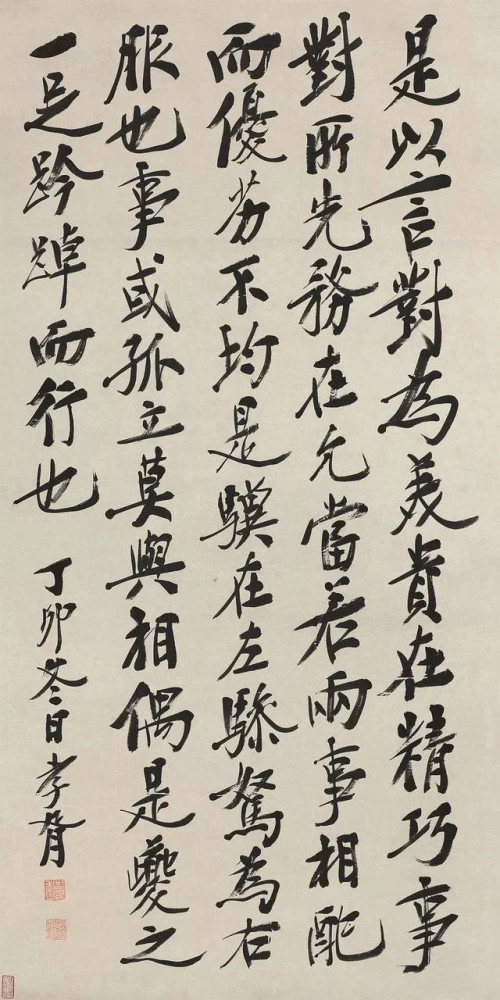 是以言對為美貴在精巧事
對所先務在允當若兩事相配
而優劣不均是驥在左驂駑為右
服也事或孤立莫與相偶是夔之
一足趻踔而行也
丁卯冬日孝胥